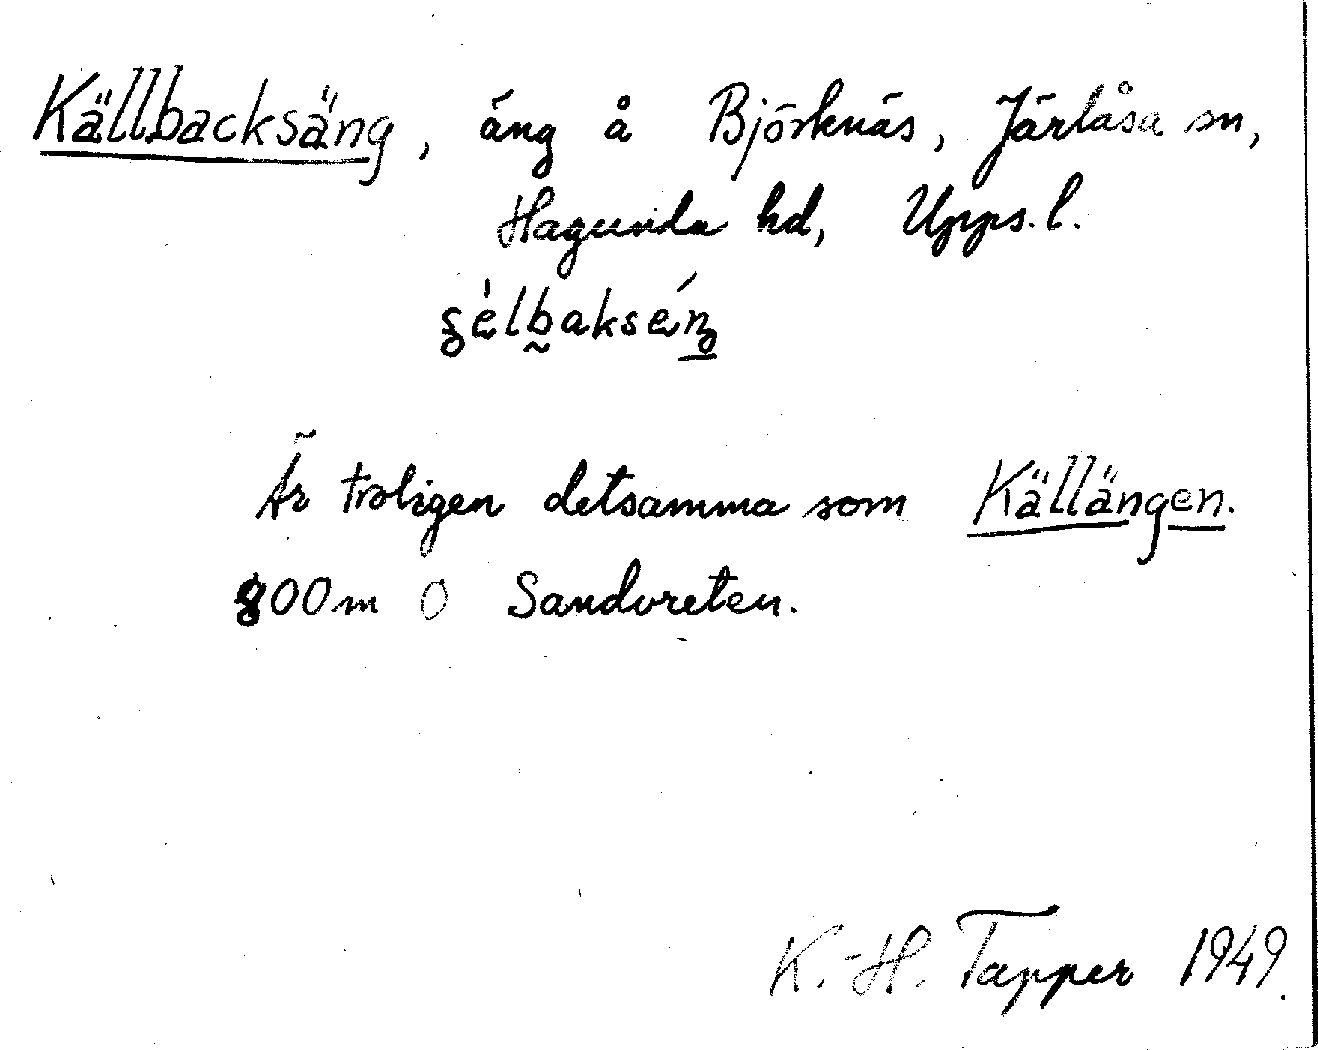 Källbacksäng, äng å Björknäs, Järlåsa sn,
Hagunda hd, Upps.l.
Är troligen detsamma som Källängen.
800m O Sandvreten.
K.-H. Tapper 1949.